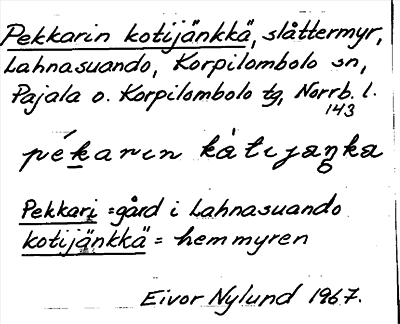 Pekkarin kotijänkkä, slåttermyr,
Lahnasuando, Korpilombolo sn,
Pajala o. Korpilombolo tg, Norrb. l.
143
Pekkari = gård i Lahnasuando
kotijänkkä = hemmyren
Eivor Nylund 1967.